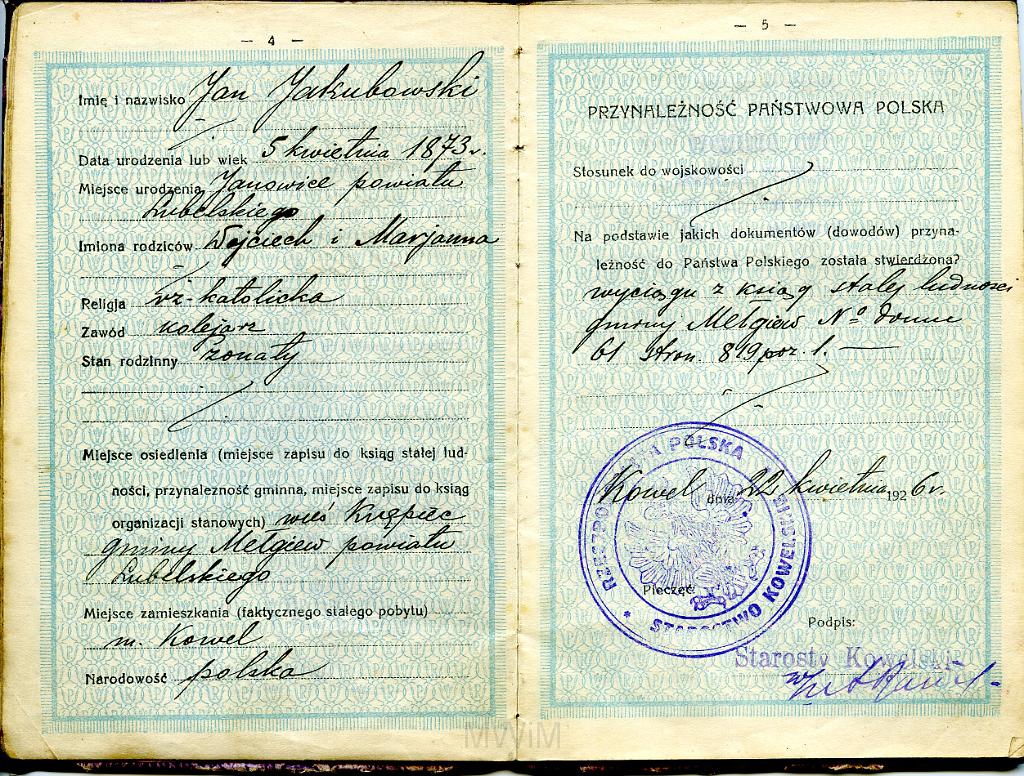 — 4 —
Imię i nazwisko Jan Jakubowski
Data urodzenia lub wiek 5 kwietnia 1873 r.
Miejsce urodzenia Janowice powiatu
Lubelskiego
Imiona rodziców Wojciech i Marjanna
Religja rz-katolicka
Zawód kolejarz
Stan rodzinny żonaty
Miejsce osiedlenia (miejsce zapisu do ksiąg stałej lud-
ności, przynalezność gminna, miejsce zapisu do ksiąg
organizacji stanowych) wieś Krępiec
gminy Mełgiew powiatu
Lubelskiego
Miejsce zamieszkania (faktycznego stałego pobytu)
m. Kowel
Narodowość polska
— 5 —
PRZYNALEŻNOŚĆ PAŃSTWOWA POLSKA
Stosunek do wojskowości
Na podstawie jakich dokumentów (dowodów) przyna-
leżność do Państwa Polskiego została stwierdzona?
wyciągu z ksiąg stałej ludności
gminy Mełgiew No domu
61 stron. 819 poz. 1. —
Kowel dnia 22 kwietnia 1926 r.
RZECZPOSPOLITA POLSKA
* STAROSTWO KOWELSKIE
Pieczęć
Podpis:
Starosty Kowelski
MWiM